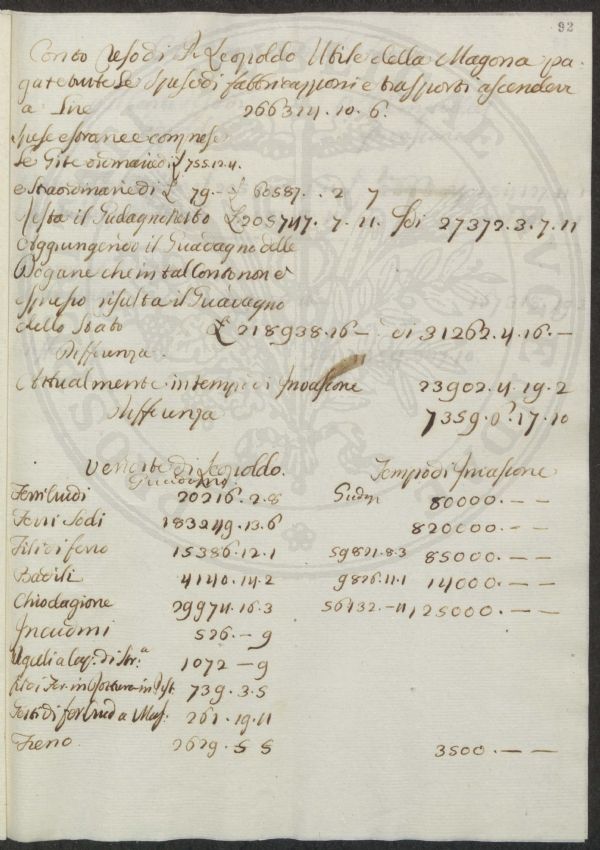 92
Conto reso di P. Leopoldo Utile della Magona pa-
gate tutte le spese di fabbricazzioni e trasporti ascendeva
a Lire 266314. 10. 6.
Spese estranee comprese
le Gite ordinarie di £ 755.12.4.
e straordinarie di £ 79. - £ 60587. . 2 7
Resta il Guadagno Netto £ 205747. 7. 11. sc.di 27372. 3. 7. 11
Aggiungendo il Guadagno delle
Dogane che in tal Conto non è
espresso risulta il Guadagno
dello Stato £ 218938. 16 - di 31262. 4. 16. -
Differenza
Attualmente in tempo di Invasione 23902. 4. 19. 2
Differenza 7359. 0. 17. 10
Vendite di Leopoldo. Tempo di Invasione
Guadagno
Ferri Crudi 20216. 2. 8 80000. - -
Ferri Sodi 183249. 13. 6 820000. - -
Fili di ferro 15386. 12. 1 59821. 8. 3 85000. - -
Badili 4140. 14. 2 9826. 11. 1 14000. - -
Chiodagione 29974. 16. 3 56432. - 11 125000. - -
Incudini 526. - 9
1072 - 9
739. 3. 5
261. 19. 11
Freno 2629. 5 5 3500. - -